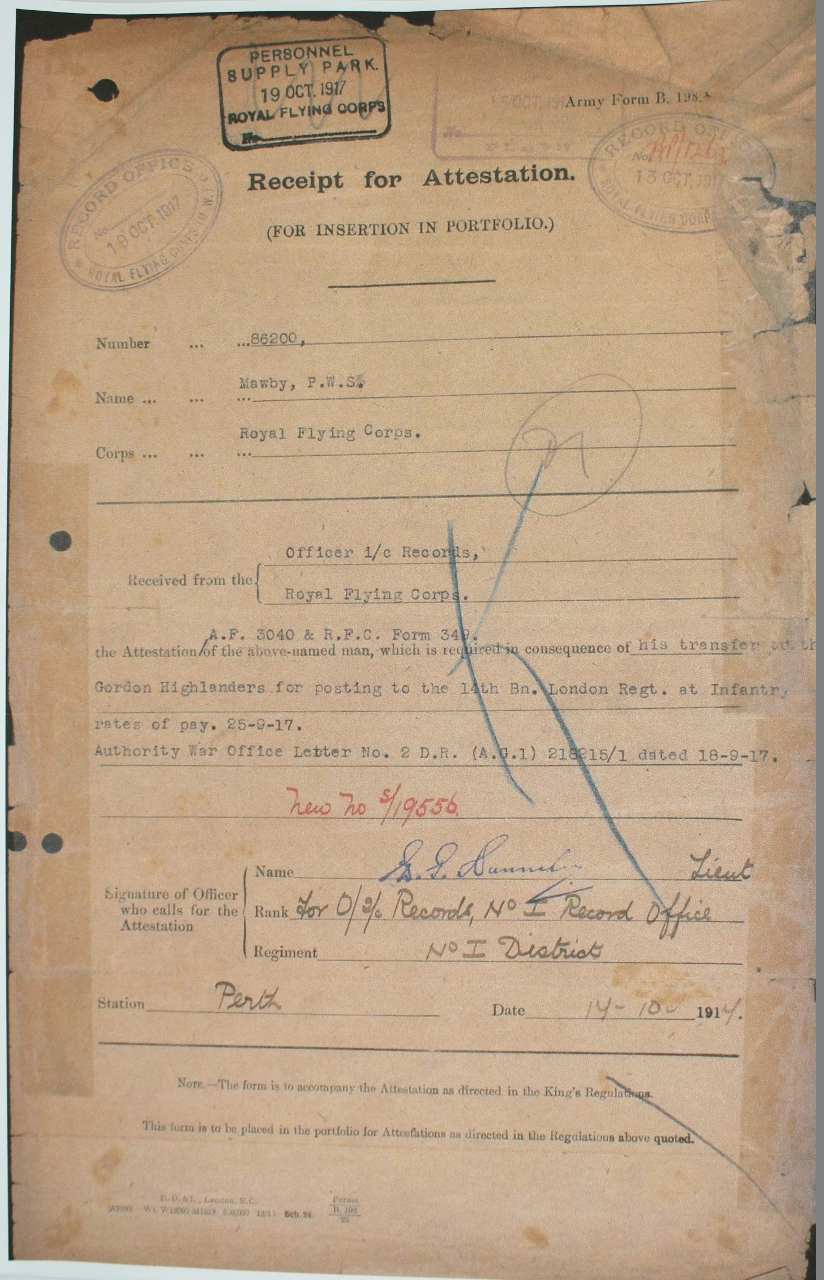 PERSONNEL
SUPPLY PARK.
19 OCT. 1917
ROYAL FLYING CORPS
No.
Army Form B. 198
RECORD OFFICE
No.
19 OCT. 1917
ROYAL FLYING CORPS
RECORD OFFICE
No.
13 OCT. 1917
ROYAL FLYING CORPS
Receipt for Attestation.
(FOR INSERTION IN PORTFOLIO.)
Number ... ...86200,
Name ... ... ...Mawby, P.W.S.
Corps ... ... ...Royal Flying Corps.
Officer i/c Records,
Received from the
Royal Flying Corps.
A.F. 3040 & R.F.C. Form 349.
the Attestation/of the above-named man, which is required in consequence of his transfer to th
Gordon Highlanders for posting to the 14th Bn. London Regt. at Infantry
rates of pay. 25-9-17.
Authority War Office Letter No. 2 D.R. (A.G.1) 218215/1 dated 18-9-17.
New No S/19556
Signature of Officer who calls for the Attestation
Name Lieut
Rank for O/i/c Records, No I Record Office
Regiment No I District
Station Perth Date 14-10-1917.
NOTE.—The form is to accompany the Attestation as directed in the King's Regulations.
This form is to be placed in the portfolio for Attestations as directed in the Regulations above quoted.
D. D. & L., London, E.C.
Sch. 26
Forms
B. 198